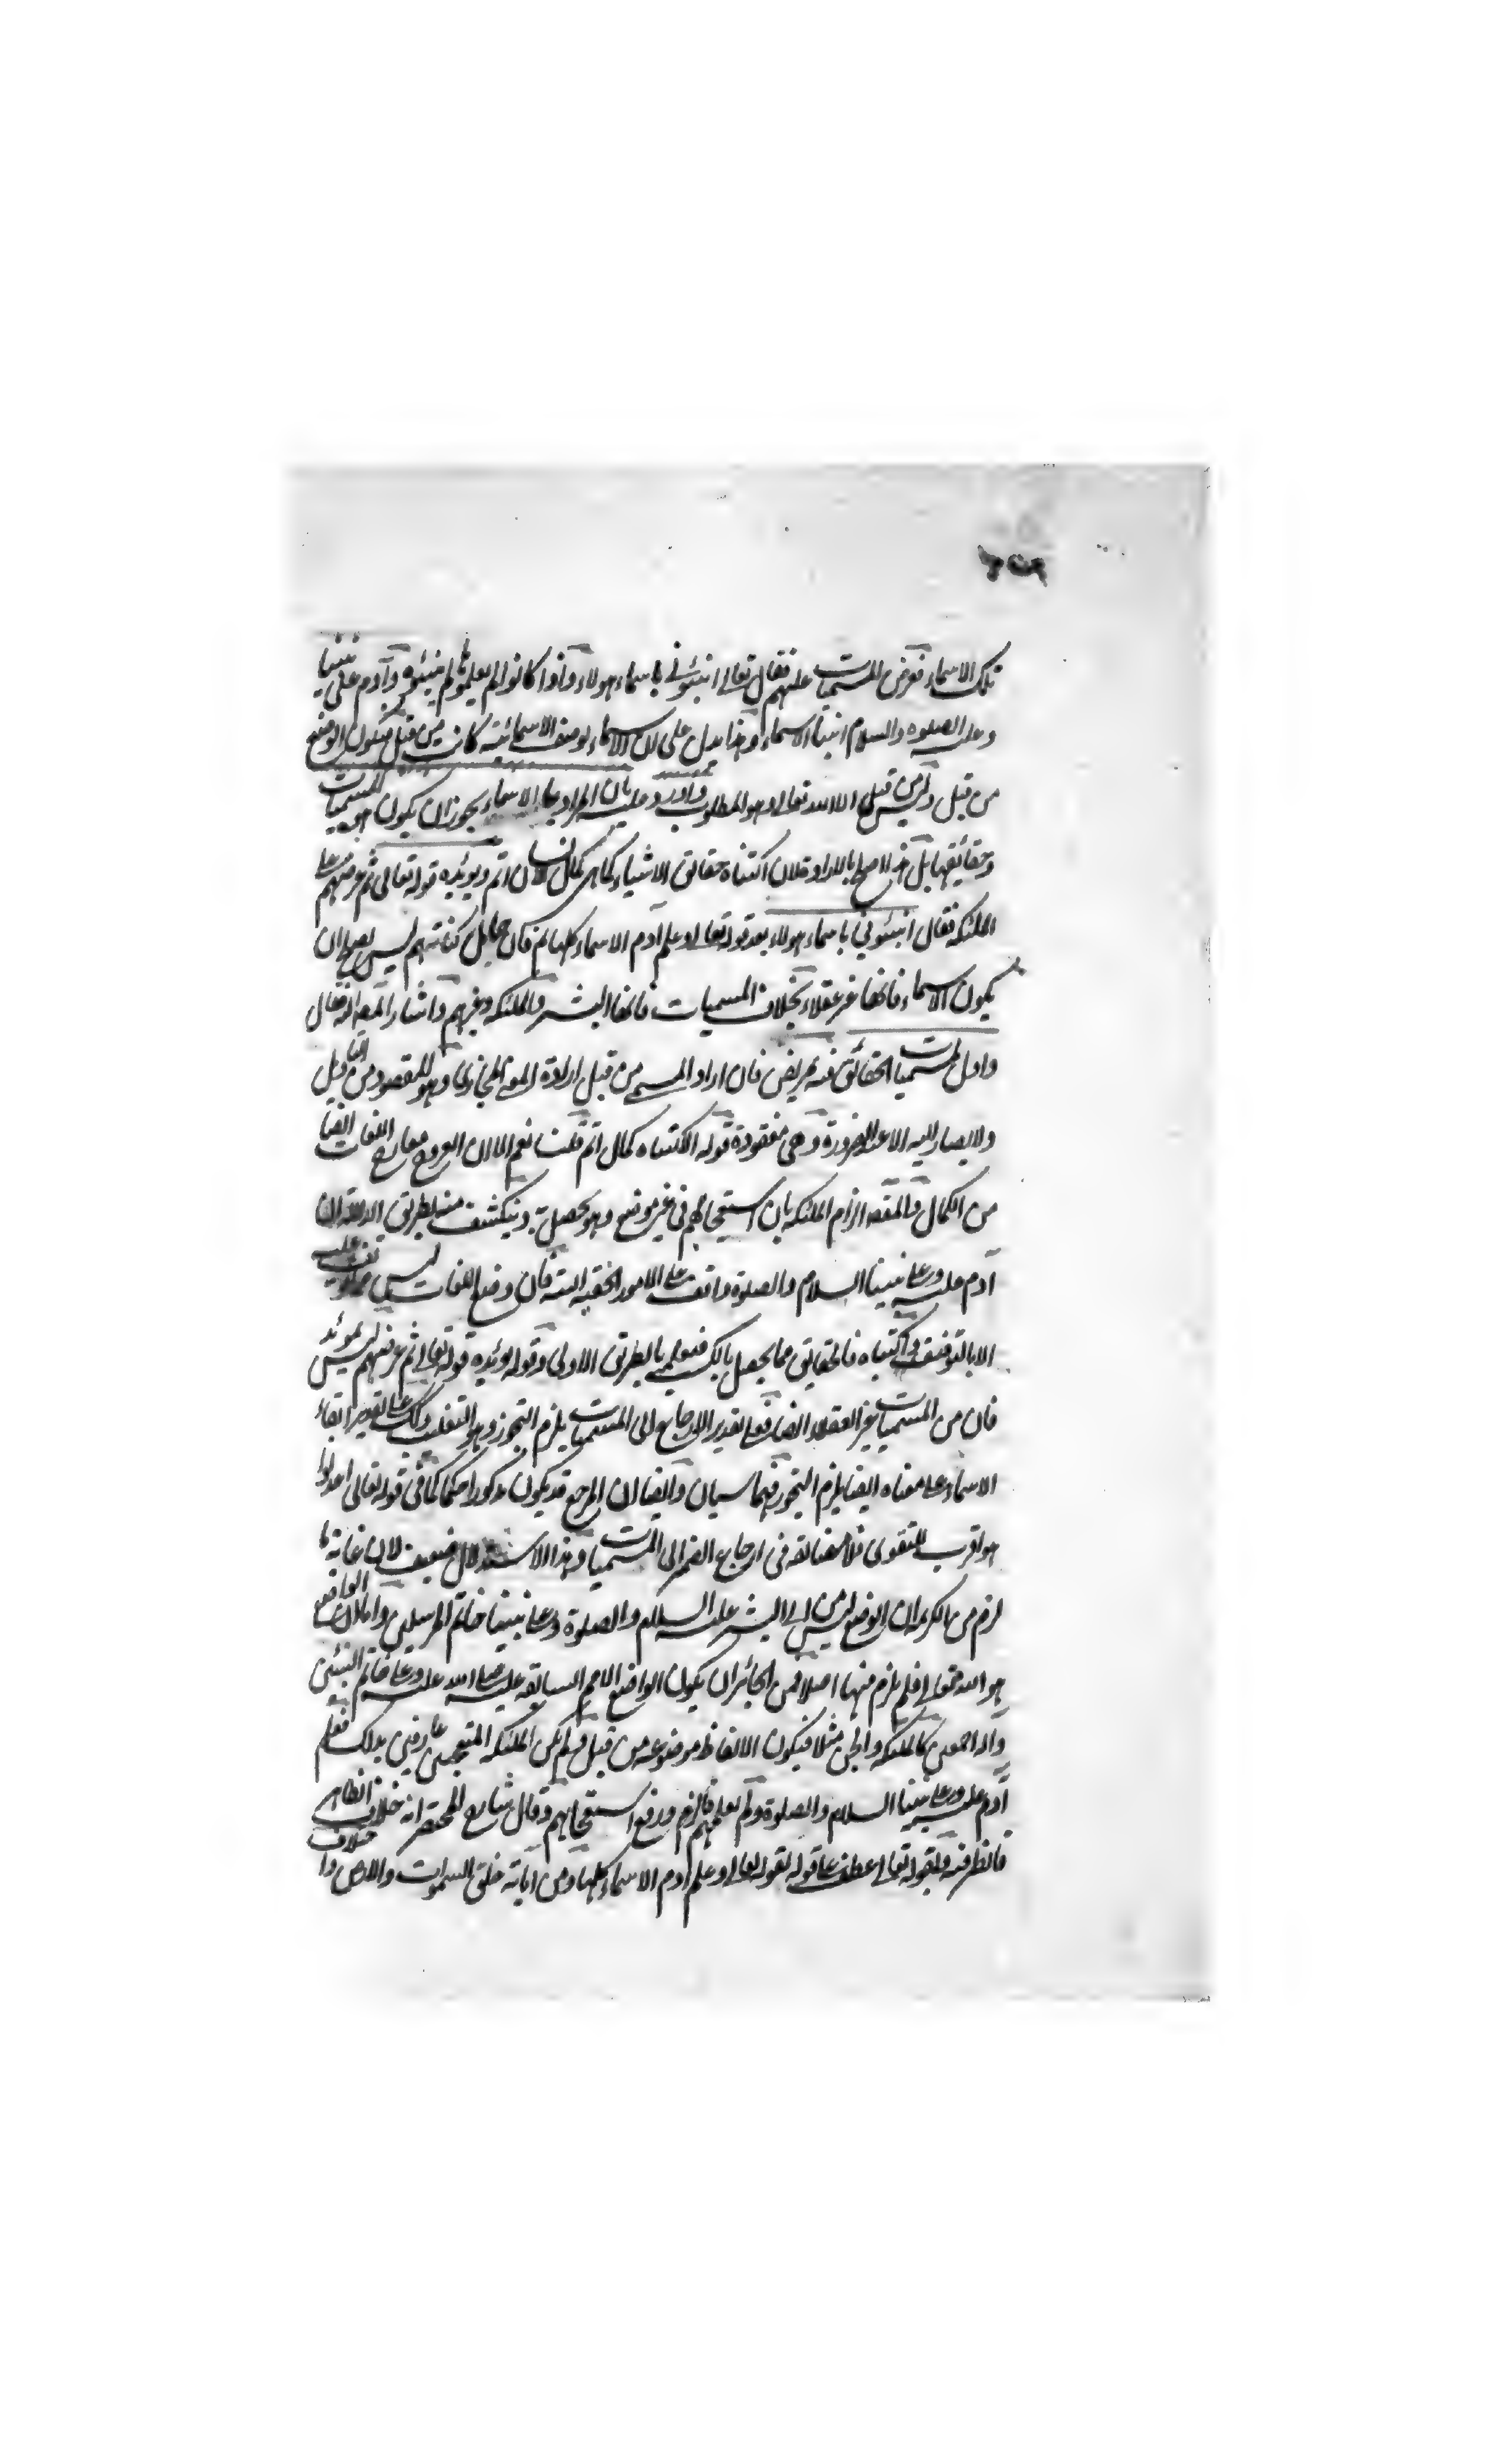 تلك الاسماء فعرض المسميات عليهم فقال تعالى انبئوني باسماء هولاء واذا كانوا لم يعلموا لم ينبئوه وآدم على نبينا
وعليه الصلوة والسلام انبئا الاسماء وهذا يدل على ان الاسماء بوصف الاسمائية كانت من قبل فيكون الوضع
من قبل وليس من قبل الا الله تعالى وهو المطلوب واورد عليه بان المراد بالاسماء يجوز ان يكون هو المسميات
وحقائقها بل هذا اصلح بالارادة لان اكتناه حقائق الاشياء كما هي كمال الانسان اتم ويؤيده قوله تعالى ثم عرضهم على
الملئكة فقال انبئوني باسماء هولاء بعد قوله تعالى وعلم آدم الاسماء كلها فان ليس يصلح ان
يكون الاسماء فانها غير عقلاء بخلاف المسميات فانها البشر والملئكة وغيرهم واشار المصـ الى فقال
واول المسميات الحقائق فيه تمريض فان اراد المسمى من قبل ارادة المعنى المجازي وهو المقصود من التاويل
ولا يصار اليه الا عند الضرورة وهي مفقودة قوله الاكتناه كمال اتم قلنا نعم الا ان العروج معارج اللغات ايضا
من الكمال والمقصـ الزام الملئكة بان استعجابهم في غير موضع وهو يحصل به وينكشف منه بطريق الدلالة ان
آدم عليه وعلى نبينا السلام والصلوة واقف على الامور الخفية البتة فان وضع اللغات ليس مما يوقف عليه
الا بالتوقيف واكتناه الحقائق مما يحصل بالكسب فيعلم بالطريق الاولى وقوله يؤيده قوله تعالى ثم عرضهم ليس بمؤيد
فان من المسميات غير العقلاء ايضا فعلى تقدير الارجاع الى المسميات يلزم التجوز وهو التغليب وكذلك على تقدير ابقاء
الاسماء على معناه ايضا يلزم التجوز فهما سيان وايضا ان المرجع قد يكون مذكورا حكما كما في قوله تعالى اعدلوا
هو اقرب للتقوى فلا مضائقة في ارجاع الضمير الى المسميات وهذا الاستدلال ضعيف لان غاية ما
لزم من الكريمة ان الوضع ليس من ابي البشر عليه السلام والصلوة وعلى نبينا خاتم المرسلين واما ان الواضع
هو الله تعالى فلم يلزم منها اصلا فمن الجائز ان يكون الواضع الامم السابقة عليه صلى الله عليه وعلى خاتم النبيين
وآله اجمعين كالملئكة والجن مثلا فيكون الالفاظ موضوعة من قبل ولم يكن الملئكة المتعجبين عارفين بذلك فعلم
آدم عليه وعلى نبينا السلام والصلوة ولم يعلمهم فالزم ورفع استعجابهم وقال شارح المختصر انه خلاف الظاهر
فانظر فيه وبقوله تعالى عطف على قوله لقوله تعالى وعلم آدم الاسماء كلها ومن آياته خلق السموات والارض و